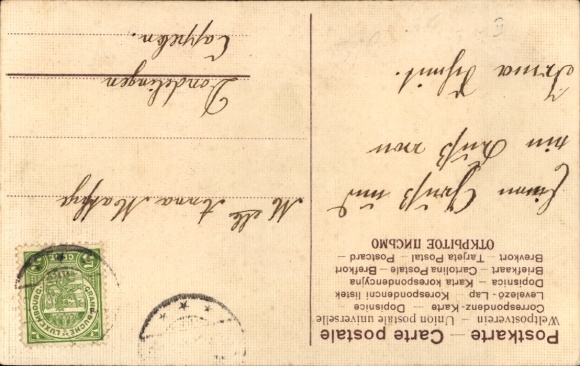 Postkarte — Carte postale
Weltpostverein — Union postale universelle
Correspondenz-Karte — Dopisnice
Levelező-Lap — Korespondenční listek
Dopisnica — Karta korespondencyjna
Briefkaart — Cartolina Postale — Brefkort
Brevkort — Tarjeta Postal — Postcard
ОТКРЫТОЕ ПИСЬМО
Einen Gruß und
ein Kuß von
Irma Schmit.
Melle Anna
Dondelingen
Cappelen.
GRAND-DUCHÉ DE LUXEMBOURG